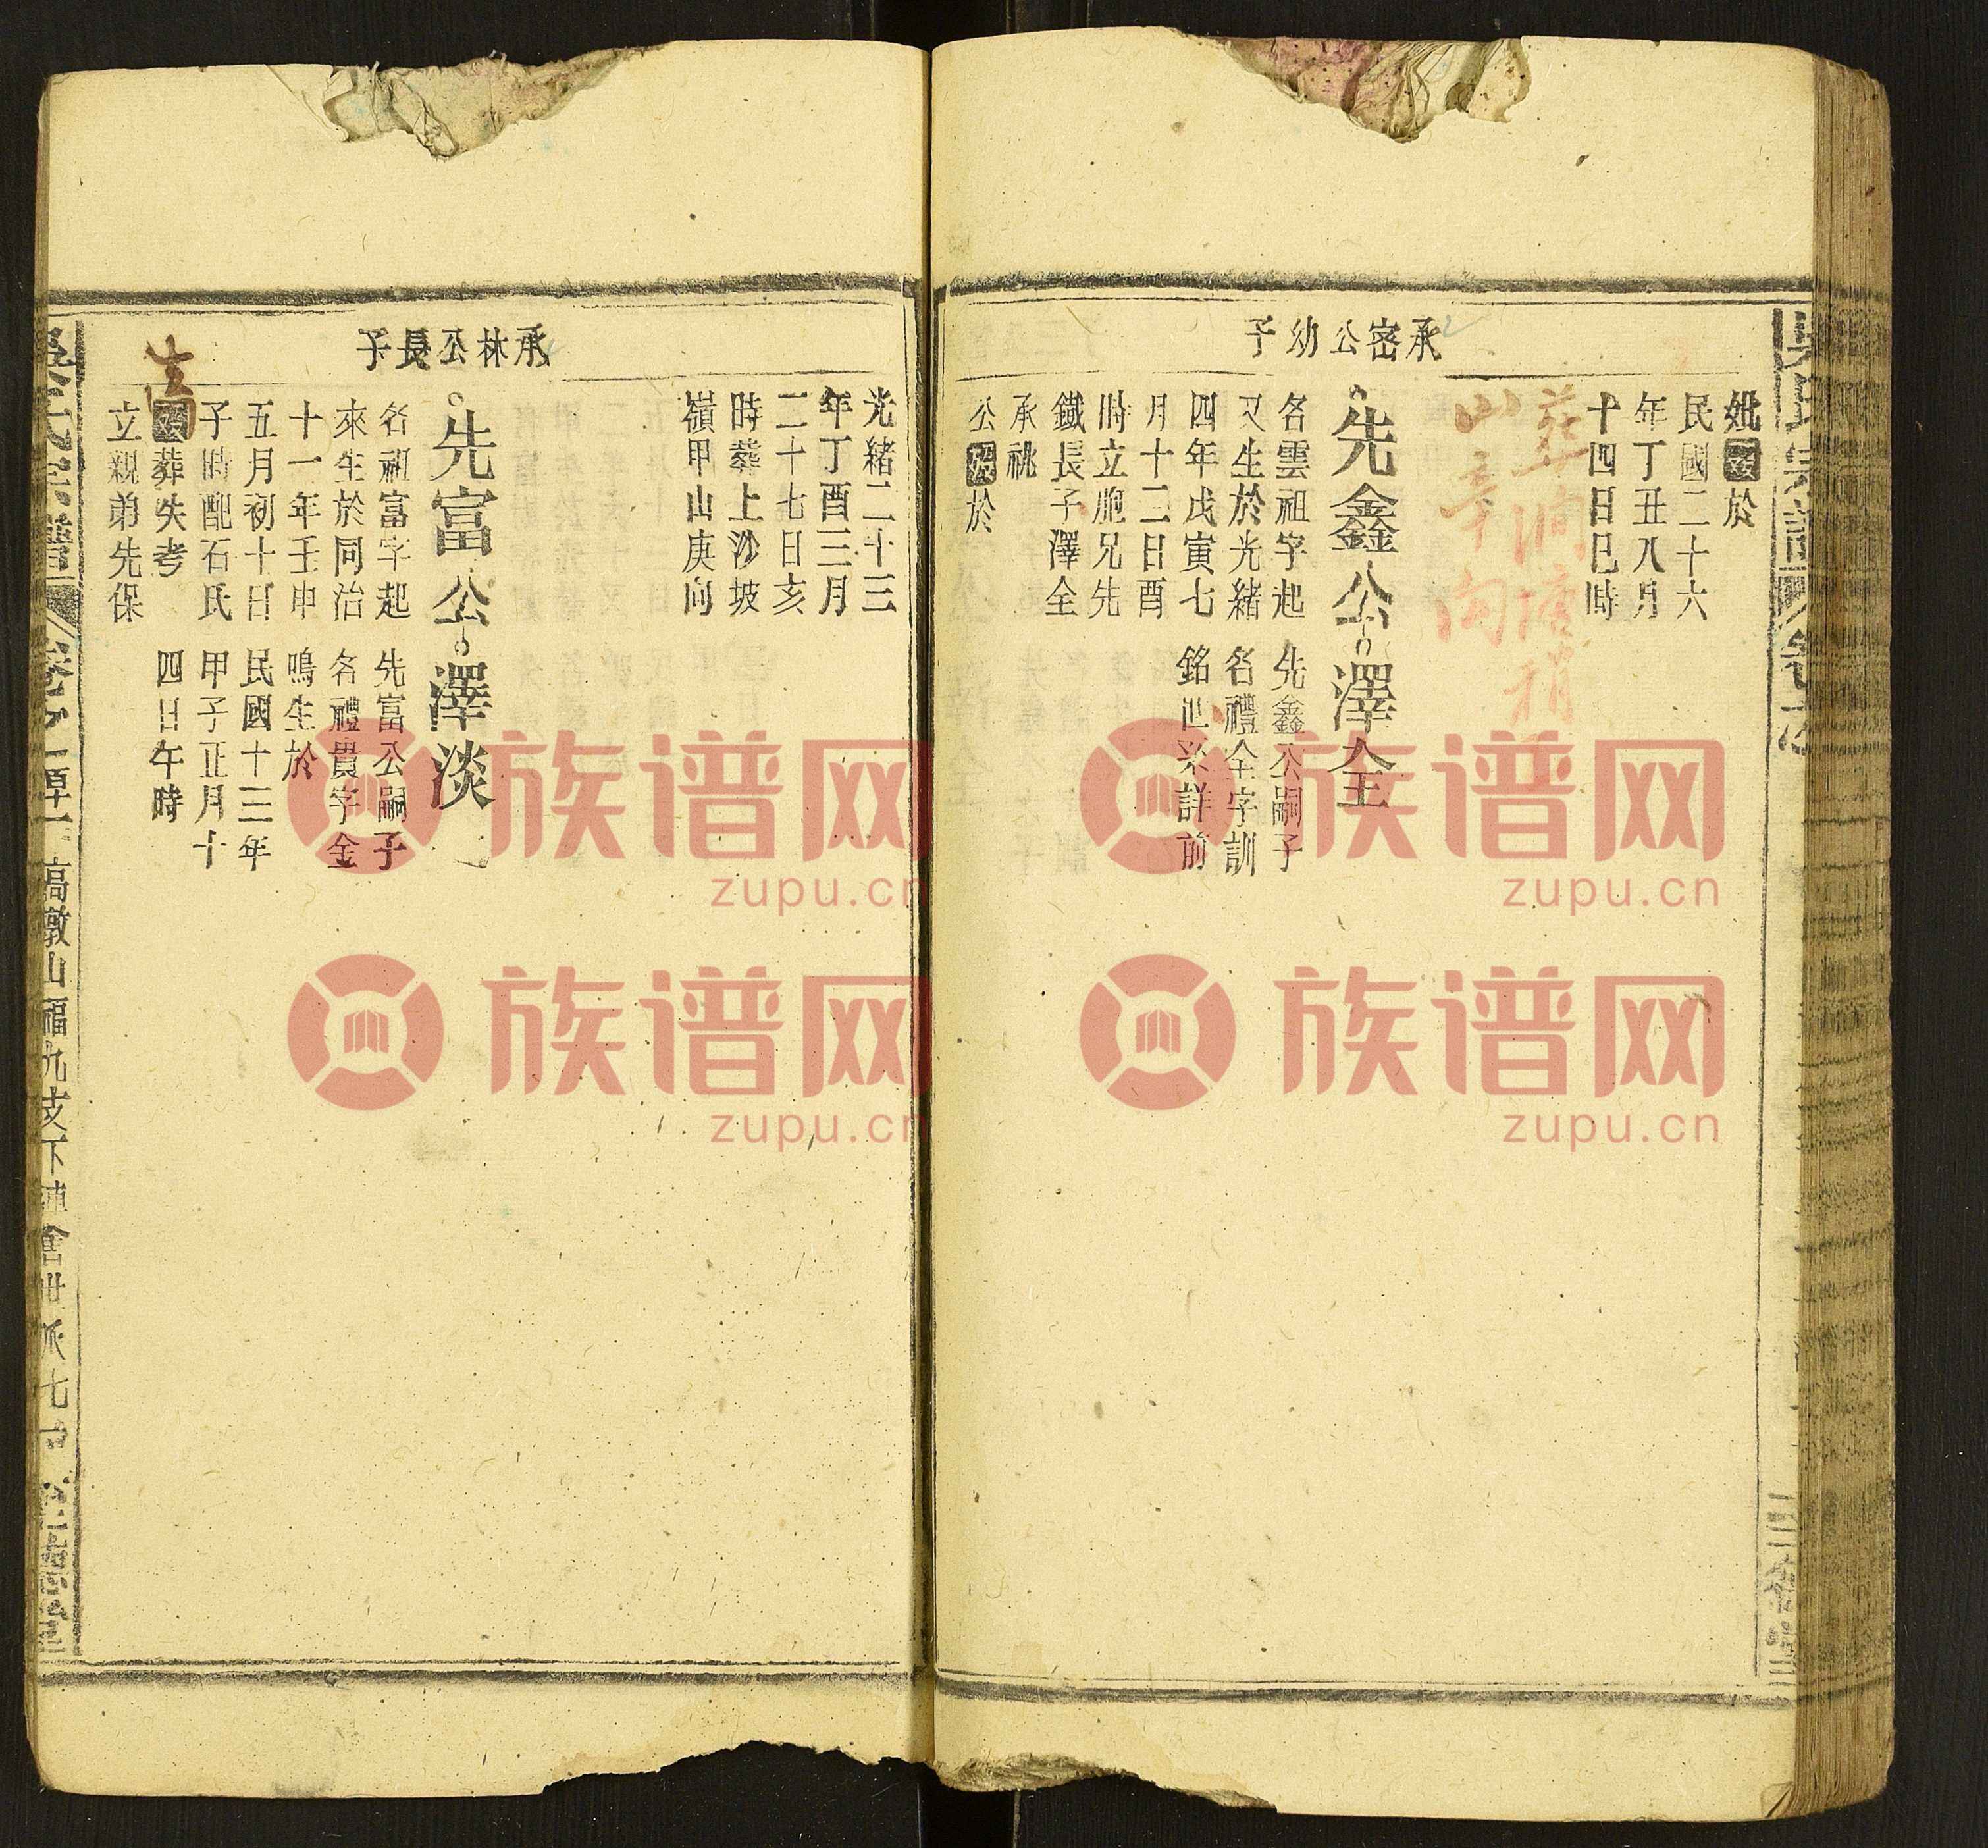 妣歿於
民國二十六
年丁丑八月
十四日巳時
山辛向
承密公幼子
先鑫公
名雲祖字起
又生於光緒
四年戊寅七
月十二日酉
時立胞兄先
鐵長子澤全
承祧
公歿於
澤全
先鑫公嗣子
名禮全字訓
銘世系詳前
光緒二十三
年丁酉三月
二十七日亥
時葬上沙坡
嶺甲山庚向
承林公長子
先富公
名祖富字起
來生於同治
十一年壬申
五月初十日
子時配石氏
歿葬失考
立親弟先保
澤淡
先富公嗣子
名禮貫字金
鳴生於
民國十三年
甲子正月十
四日午時
吳氏宗譜
高墩山福九支下
族谱网
zupu.cn
族谱网
zupu.cn
族谱网
zupu.cn
族谱网
zupu.cn